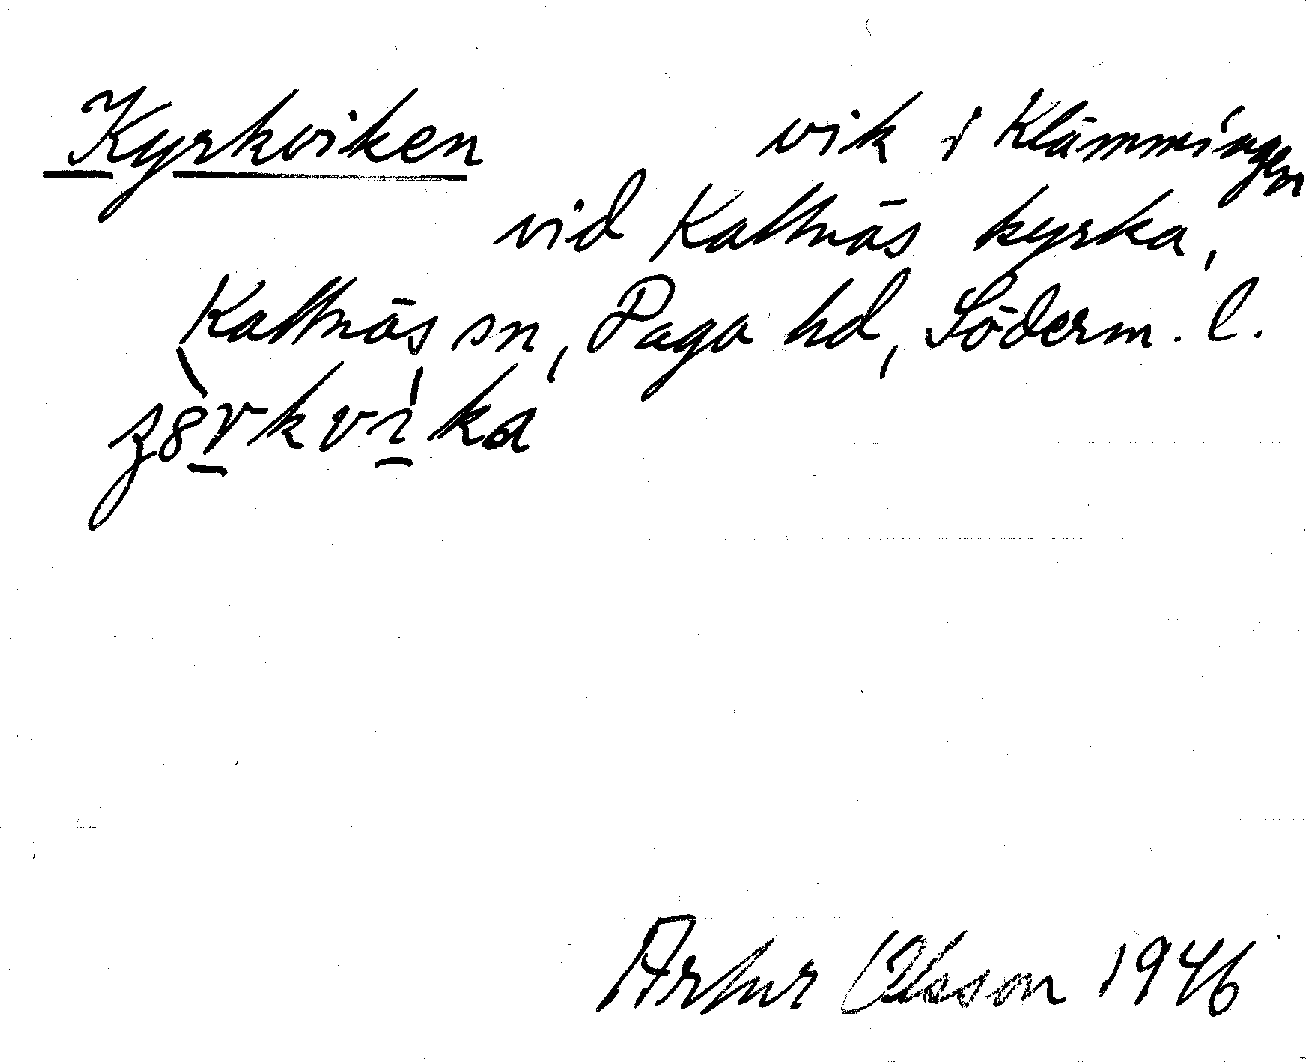 Kyrkviken vik i Klämmingen
vid Kattnäs kyrka,
Kattnäs sn, Daga hd, Söderm. l.
Artur Olsson 1946